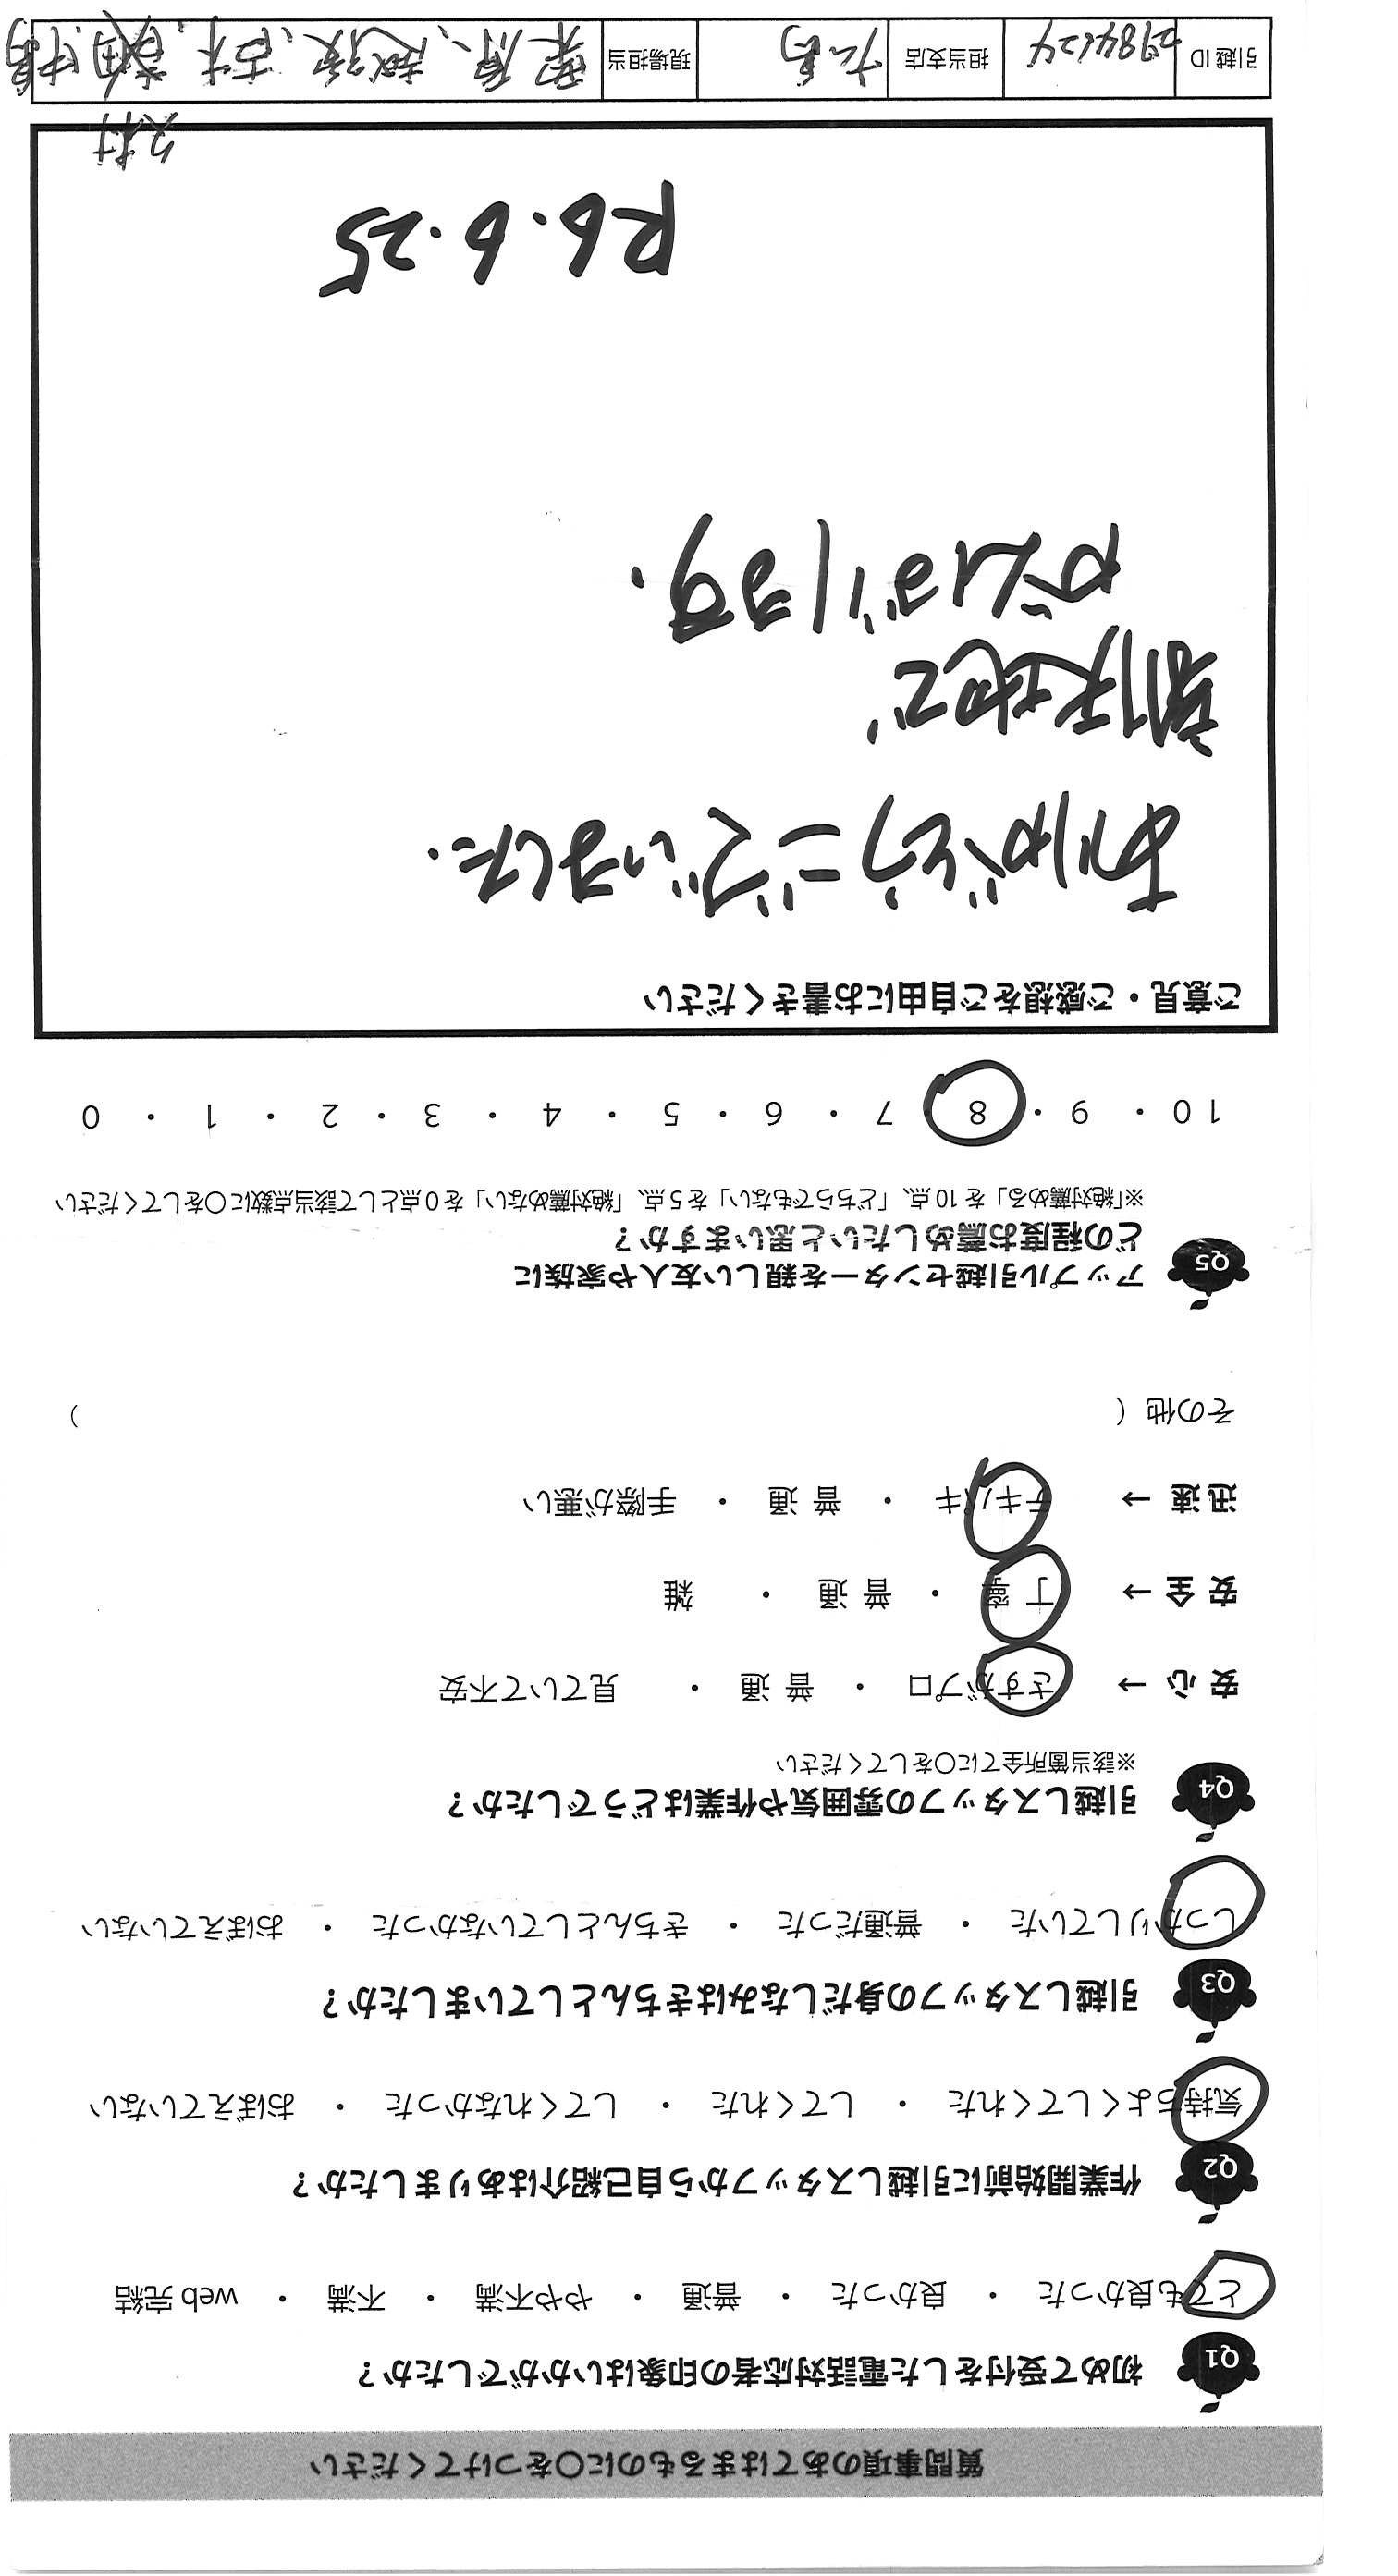 質問事項のあてはまるものに○をつけてください
Q1 初めて受付をした電話対応者の印象はいかがでしたか？
とても良かった ・ 良かった ・ 普通 ・ やや不満 ・ 不満 ・ web 完結
Q2 作業開始前に引越しスタッフから自己紹介はありましたか？
気持ちよくしてくれた ・ してくれた ・ してくれなかった ・ おぼえていない
Q3 引越しスタッフの身だしなみはきちんとしていましたか？
しっかりしていた ・ 普通だった ・ きちんとしていなかった ・ おぼえていない
Q4 引越しスタッフの雰囲気や作業はどうでしたか？
※該当箇所全てに○をしてください
安 心 → さすがプロ ・ 普 通 ・ 見ていて不安
安 全 → 丁 寧 ・ 普 通 ・ 雑
迅 速 → テキパキ ・ 普 通 ・ 手際が悪い
その他（ ）
Q5 アップル引越センターを親しい友人や家族に
どの程度お薦めしたいと思いますか？
※「絶対薦める」を 10 点、「どちらでもない」を 5 点、「絶対薦めない」を 0 点として該当点数に○をしてください
10 ・ 9 ・ 8 ・ 7 ・ 6 ・ 5 ・ 4 ・ 3 ・ 2 ・ 1 ・ 0
ご意見・ご感想をご自由にお書きください
ありがとうございました.
新天地で
がんばります.
R6.6.25
久村
引越 ID 2984624 担当支店 現場担当 栗原、